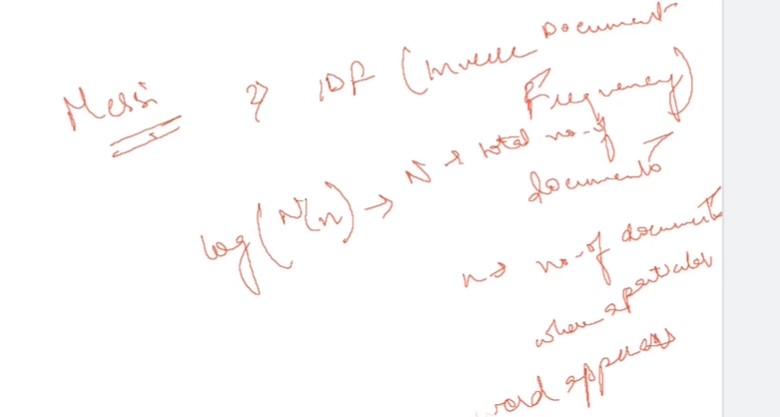 Messi
2) IDF (Inverse Document
Frequency)
log(N/n) → N → total no. of
documents
n → no. of documents
where a particular
word appears